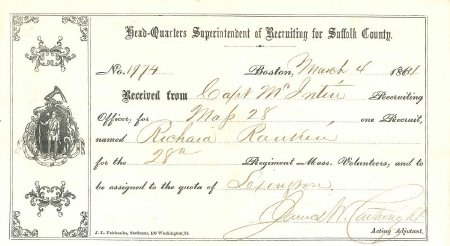 Head-Quarters Superintendent of Recruiting for Suffolk County.
No. 1774 Boston, March 4 1864
Received from Capt McIntire Recruiting
Officer, for Mass 28 one Recruit,
named Richard
for the 28th Regiment Mass. Volunteers, and to
be assigned to the quota of Lexington
James W. Cartwright
J. L. Fairbanks, Stationer, 136 Washington St. Acting Adjutant.